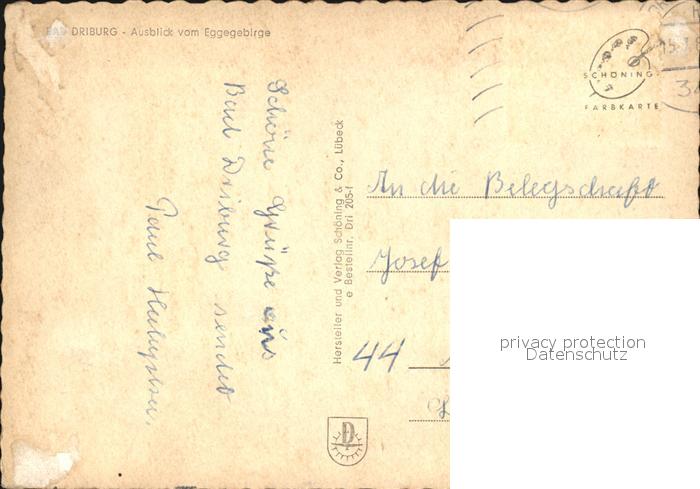 BAD DRIBURG - Ausblick vom Eggegebirge
Schöne Grüße aus
Bad Driburg sendet
Paul
Hersteller und Verlag Schöning & Co., Lübeck
e Bestellnr. Dri 205-f
SCHÖNING
FARBKARTE
An die Belegschaft
Josef
44
privacy protection
Datenschutz